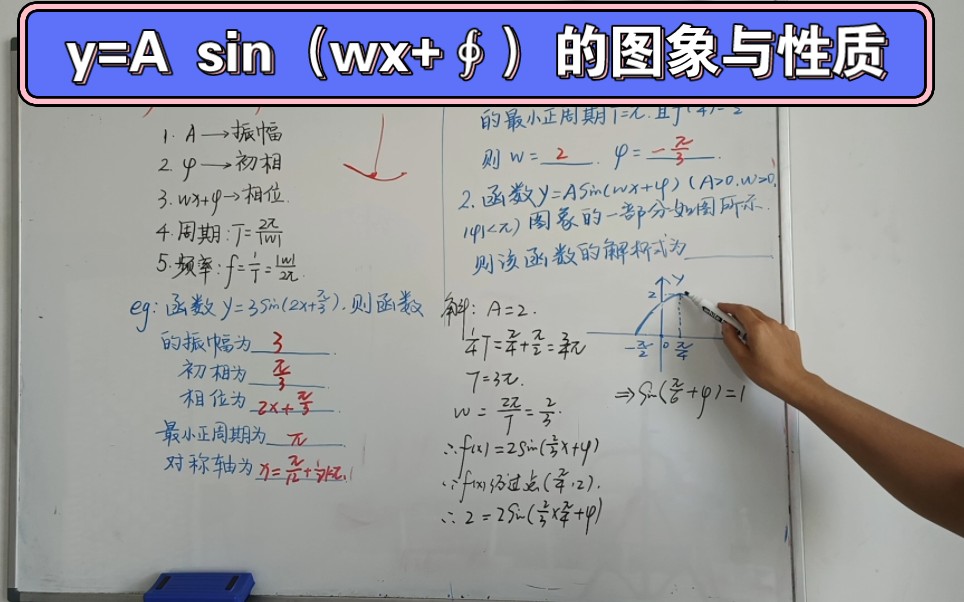 y=A sin（wx+∮）的图象与性质
1. A→振幅
2. φ→初相
3. wx+φ→相位.
4. 周期: T=2π/|w|
5. 频率: f=1/T=|w|/2π.
eg: 函数 y=3sin(2x+π/3). 则函数
的振幅为 3 .
初相为 π/3 .
相位为 2x+π/3 .
最小正周期为 π .
对称轴为 x=π/12+1/2kπ.
的最小正周期T=π. 且
则 w= 2 . φ= -π/3 .
2. 函数 y=Asin(wx+φ) (A>0. w>0.
|φ|<π) 图象的一部分如图所示.
则该函数的解析式为
解: A=2.
1/4T=π/4+π/2=3/4π
T=3π.
w=2π/T=2/3.
∴f(x)=2sin(2/3x+φ)
∵f(x)经过点(π/4,2).
∴2=2sin(2/3×π/4+φ)
y
2
-π/2 0 π/4
⇒sin(π/6+φ)=1